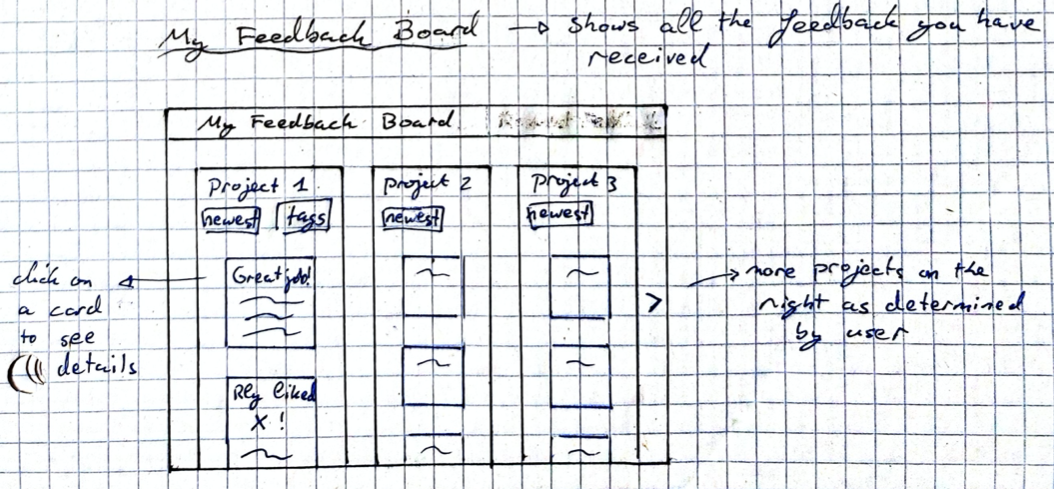 My Feedback Board → shows all the feedback you have
received
My Feedback Board
Project 1
newest tags
Project 2
newest
Project 3
newest
click on
a card
to see
details
Great job!
Rly liked
X !
>
→ more projects on the
right as determined
by user